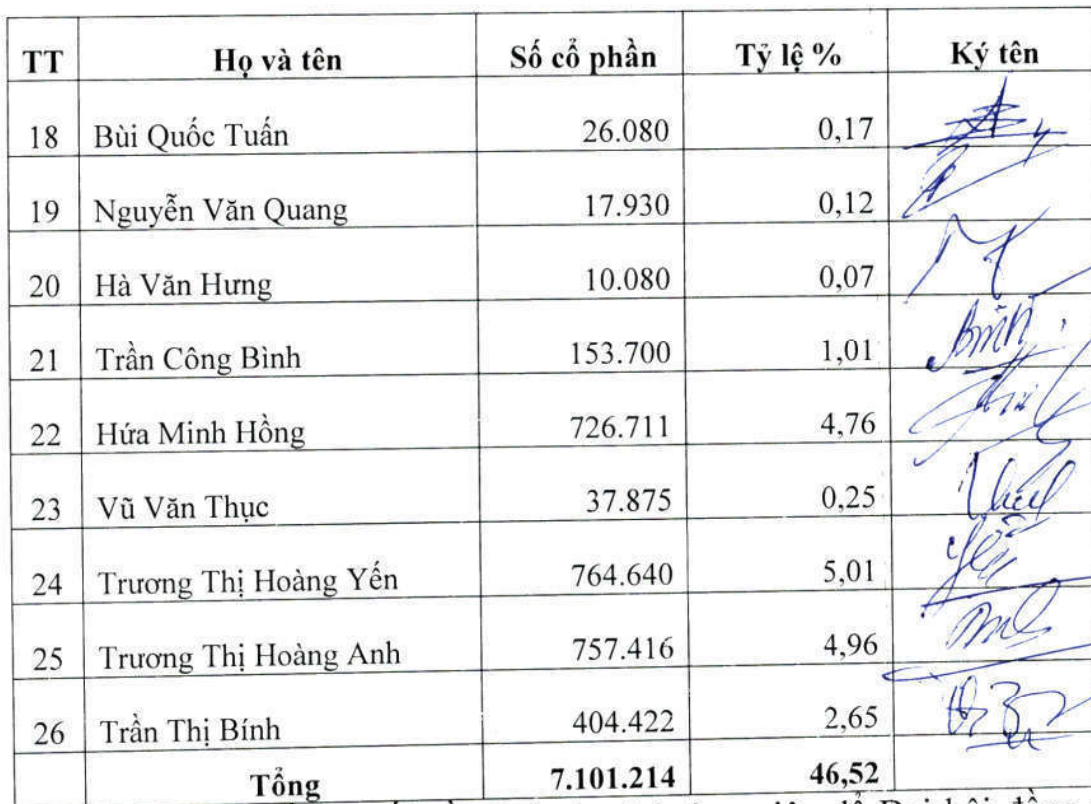 TT Họ và tên Số cổ phần Tỷ lệ % Ký tên
18 Bùi Quốc Tuấn 26.080 0,17
19 Nguyễn Văn Quang 17.930 0,12
20 Hà Văn Hưng 10.080 0,07
21 Trần Công Bình 153.700 1,01
22 Hứa Minh Hồng 726.711 4,76
23 Vũ Văn Thục 37.875 0,25
24 Trương Thị Hoàng Yến 764.640 5,01
25 Trương Thị Hoàng Anh 757.416 4,96
26 Trần Thị Bính 404.422 2,65
Tổng 7.101.214 46,52